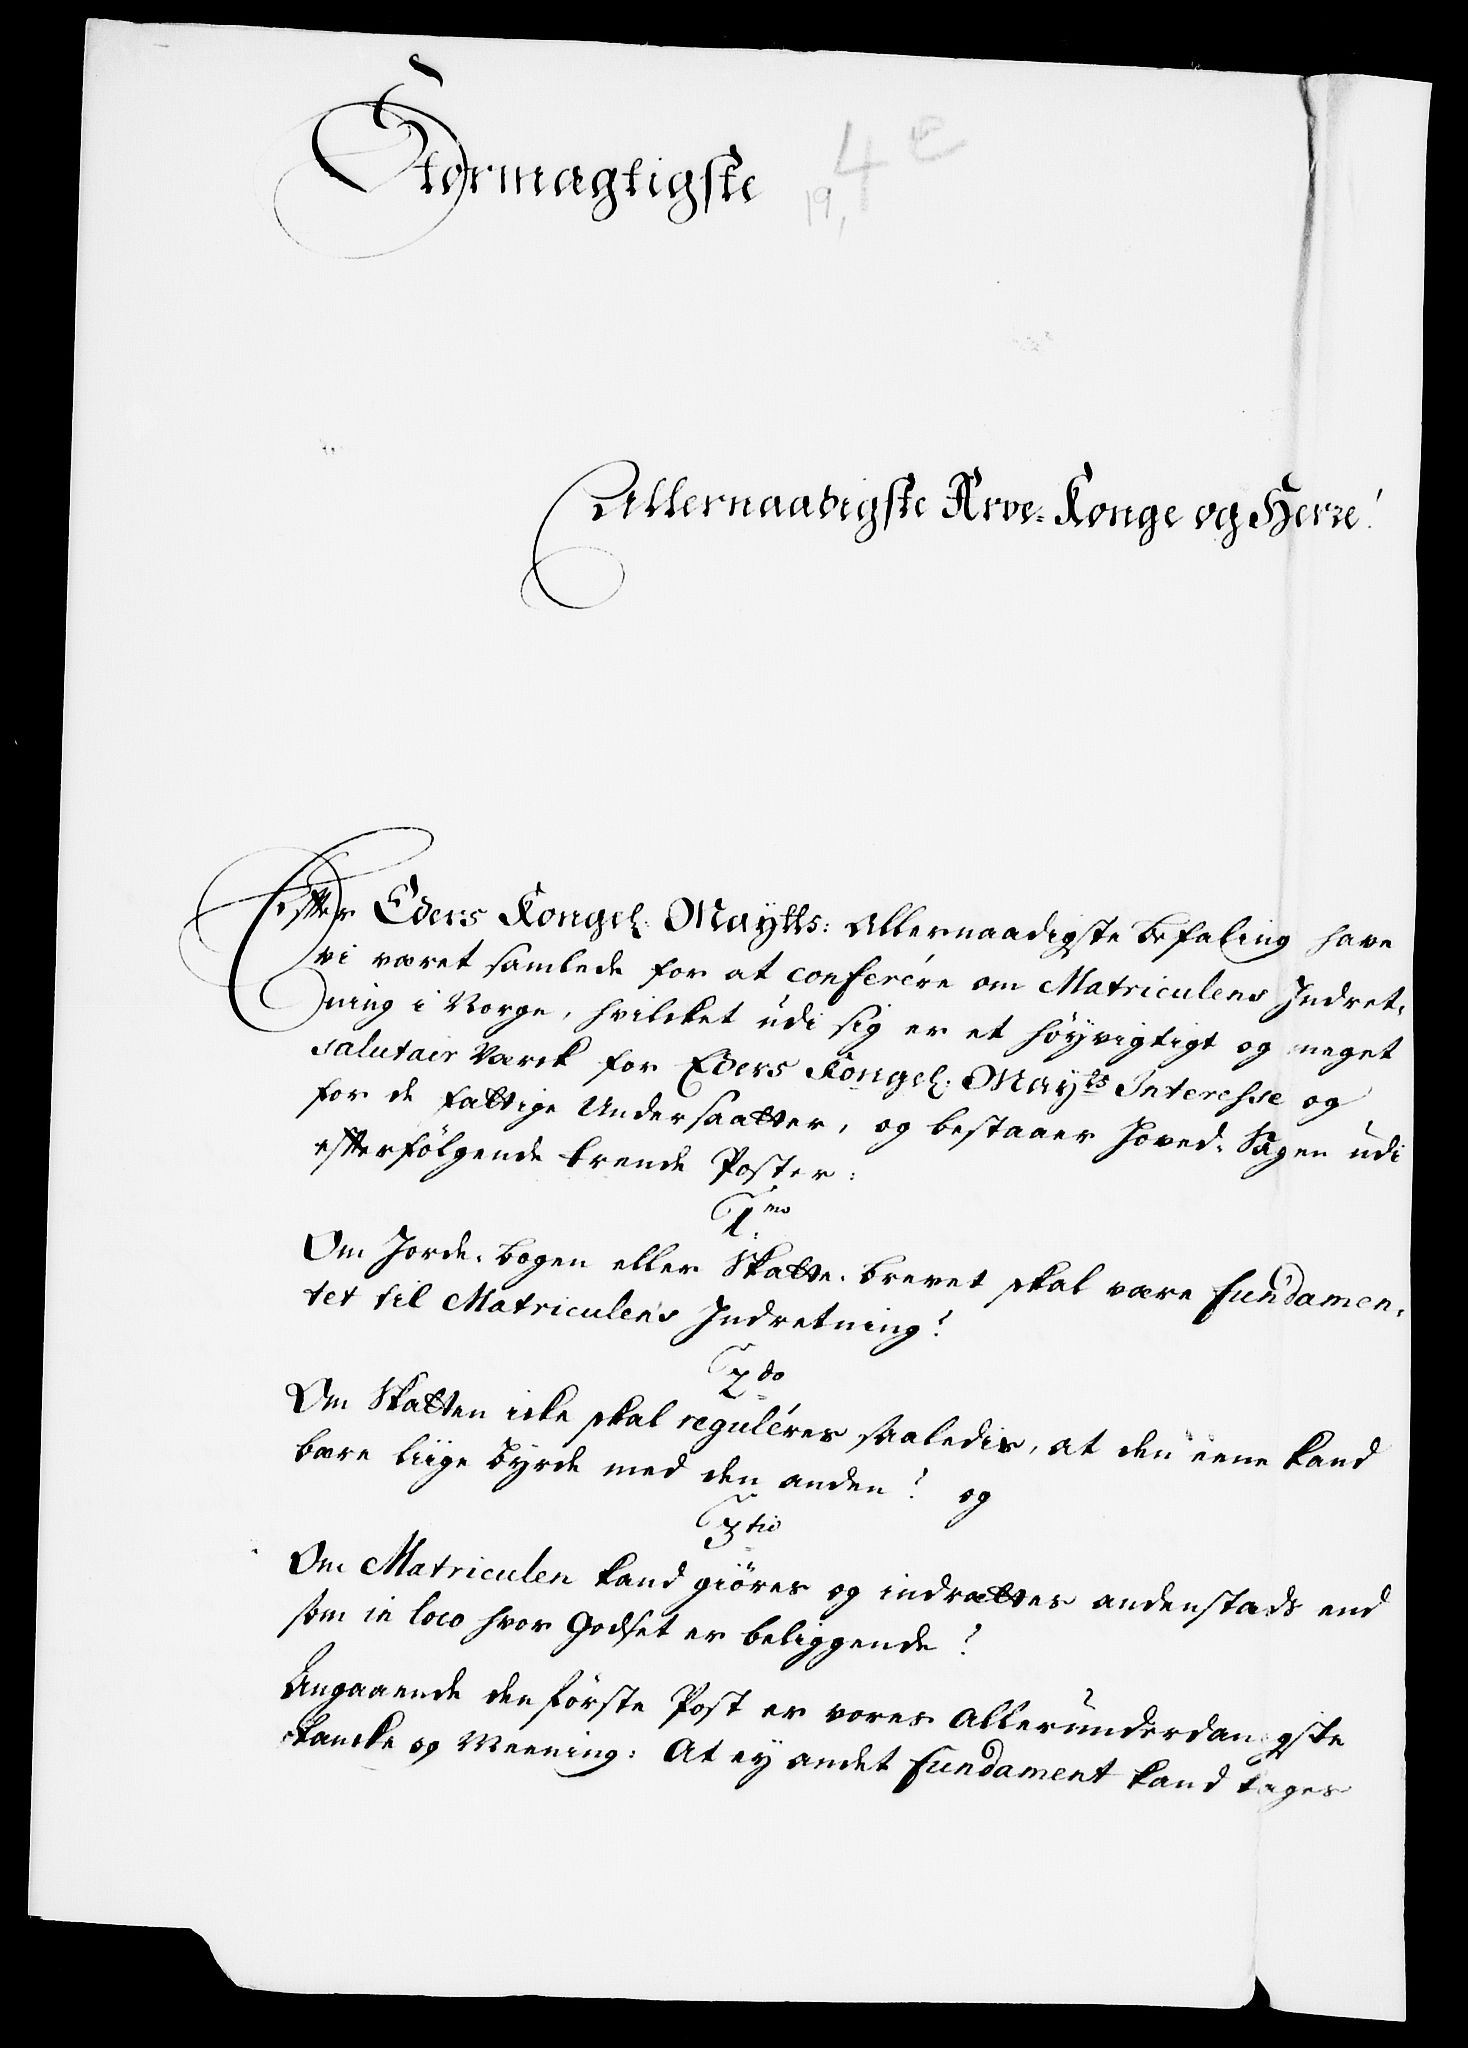 Stormagtigste
4 e
19,
Allernaadigste Arve-Konge og Herre!
Effter Eders Kongel. Mayts: Allernaadigste Befaling have
vi været samlede for at conferére om Matriculens Indret-
ning i Norge, hvilcket udi sig er et höyvigtigt og meget
salutair Værck for Eders Kongel. Mayts Interesse og
for de fattige Undersaatter, og bestaaer Hoved-Sagen udi
effterfölgende trende Poster:
1mo
Om Jorde-bogen eller Skatte-brevet skal være fundamen-
tet til Matriculens Indretning?
2do
Om Skatten icke skal reguléres saaledis, at den eene kand
bære liige Byrde med den anden? og
3tio
Om Matriculen kand giöres og indrættes andenstads end
som in loco hvor Godset er beliggende?
Angaaende den förste Post er vores Allerunderdanigste
tancke og Meening: At ey andet fundament kand tages